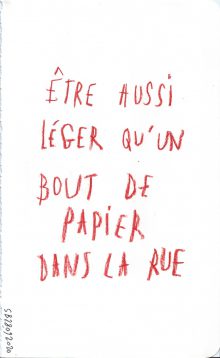 ÊTRE AUSSI
LÉGER QU'UN
BOUT DE
PAPIER
DANS LA RUE
SB28092020